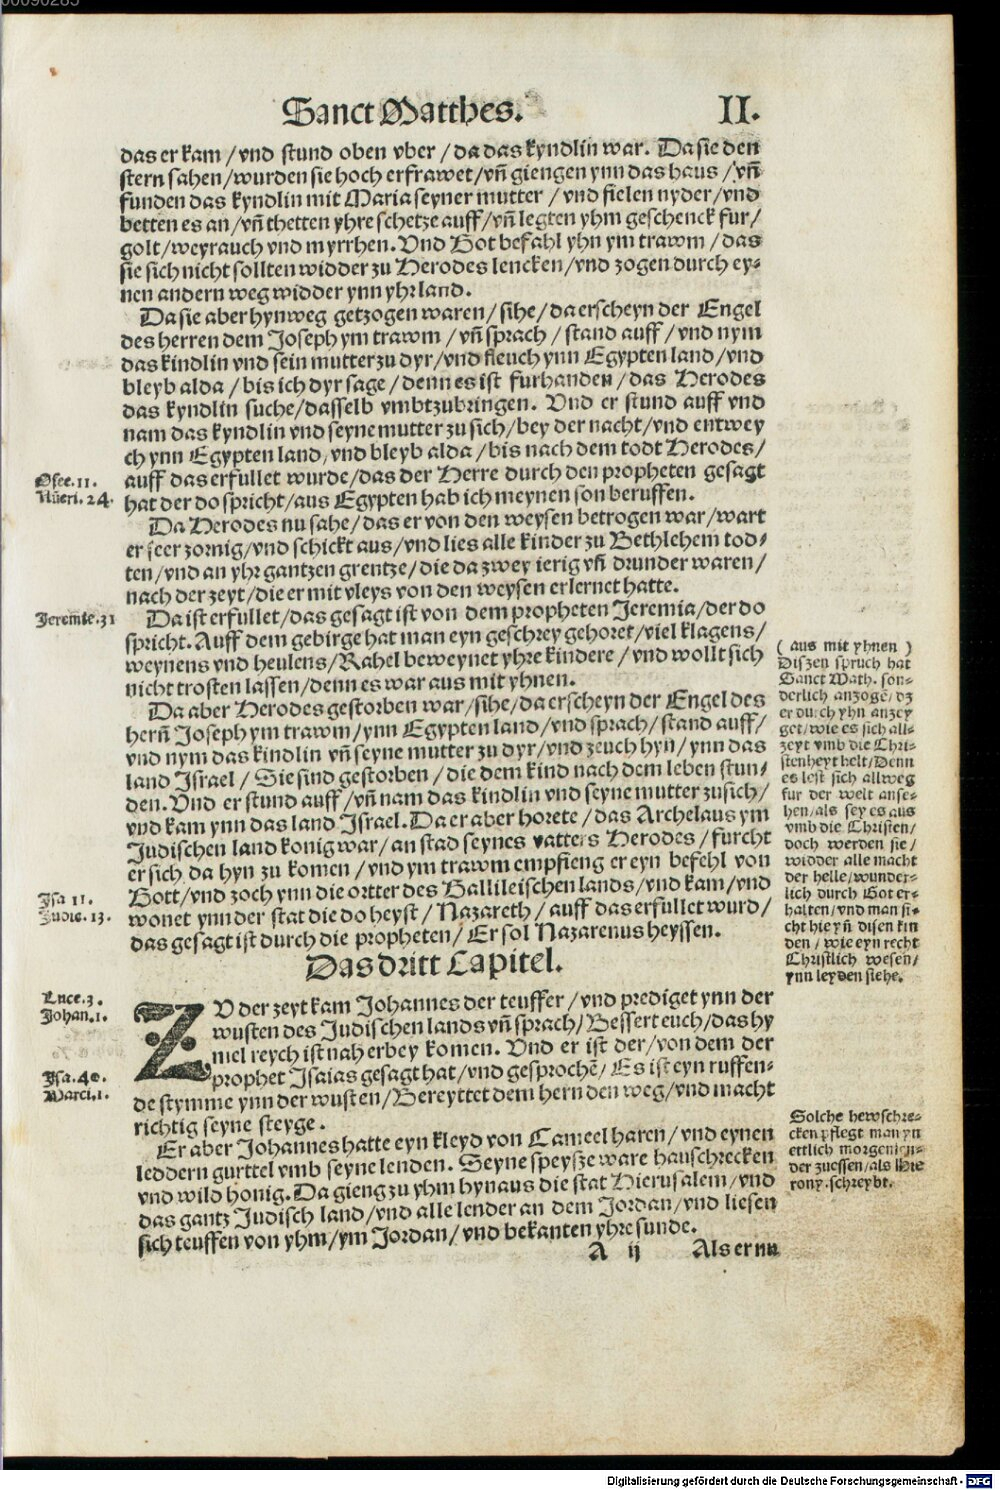 Sanct Matthes. II.
das er kam /vnd stund oben vber /da das kyndlin war. Da sie den
stern sahen/wurden sie hoch erfrawet/vñ giengen ynn das haus /vñ
funden das kyndlin mit Maria seyner mutter /vnd fielen nyder/vnd
betten es an /vñ thetten yhre schetze auff/vñ legten yhm geschenck fur/
golt/weyrauch vnd myrrhen. Vnd Got befahl yhn ym trawm /das
sie sich nicht sollten widder zu Herodes lencken/vnd zogen durch ey-
nen andern weg widder ynn yhr land.
Da sie aber hynweg getzogen waren/sihe/da erscheyn der Engel
des herren dem Joseph ym trawm /vñ sprach /stand auff /vnd nym
das kindlin vnd sein mutter zu dyr/vnd fleuch ynn Egypten land/vnd
bleyb alda /bis ich dyr sage /denn es ist furhanden /das Herodes
das kyndlin suche/dasselb vmbtzubringen. Vnd er stund auff vnd
nam das kyndlin vnd seyne mutter zu sich/bey der nacht/vnd entwey
ch ynn Egypten land, vnd bleyb alda /bis nach dem todt Herodes/
auff das erfullet wurde/das der Herre durch den propheten gesagt
hat der do spricht/aus Egypten hab ich meynen son beruffen.
Osee.11.
Nũeri.24.
Da Herodes nu sahe/das er von den weysen betrogen war/wart
er seer zornig/vnd schickt aus/vnd lies alle kinder zu Bethlehem tod-
ten/vnd an yhr gantzen grentze/die da zwey ierig vñ drunder waren/
nach der zeyt/die er mit vleys von den weysen erlernet hatte.
Jeremie.31
Da ist erfullet/das gesagt ist von dem propheten Jeremia/der do
spricht. Auff dem gebirge hat man eyn geschrey gehoret/viel klagens/
weynens vnd heulens/Rahel beweynet yhre kindere /vnd wollt sich
nicht trosten lassen/denn es war aus mit yhnen.
Da aber Herodes gestorben war/sihe/da erscheyn der Engel des
herñ Joseph ym trawm/ynn Egypten land/vnd sprach/stand auff/
vnd nym das kindlin vñ seyne mutter zu dyr/vnd zeuch hyn/ynn das
land Israel /Sie sind gestorben /die dem kind nach dem leben stun-
den. Vnd er stund auff/vñ nam das kindlin vnd seyne mutter zu sich/
vnd kam ynn das land Israel. Da er aber horete/das Archelaus ym
Judischen land konig war/an stad seynes vatters Herodes/furcht
er sich da hyn zu komen/vnd ym trawm empfieng er eyn befehl von
Gott/vnd zoch ynn die ortter des Gallileischen lands/vnd kam/vnd
wonet ynn der stat die do heyst/Nazareth/auff das erfullet wurd/
das gesagt ist durch die propheten/Er sol Nazarenus heyssen.
Isa 11.
Judic.13.
( aus mit yhnen )
Diszen spruch hat
Sanct Math. son-
derlich anzogẽ/dz
er durch yhn anzey
get/wie es sich all-
zeyt vmb die Chri-
stenheyt helt/Denn
es lest sich allweg
fur der welt anse-
hen/als sey es aus
vmb die Christen/
doch werden sie/
widder alle macht
der helle/wunder-
lich durch Got er-
halten/vnd man si-
cht hie yñ disen kin
den/wie eyn recht
Christlich wesen/
ynn leyden stehe.
Das dritt Capitel.
Luce.3.
Johan.1.
ZV der zeyt kam Johannes der teuffer/vnd prediget ynn der
wusten des Judischen lands vñ sprach/Bessert euch/das hy
mel reych ist nah erbey komen. Vnd er ist der/von dem der
prophet Isaias gesagt hat/vnd gesprochẽ/Es ist eyn ruffen-
de stymme ynn der wusten/Bereyttet dem hern den weg/vnd macht
richtig seyne steyge.
Isa.40.
Marci.1.
Er aber Johannes hatte eyn kleyd von Cameel haren/vnd eynen
leddern gurttel vmb seyne lenden. Seyne speysze ware hauschrecken
vnd wild honig. Da gieng zu yhm hynaus die stat Hierusalem/vnd
das gantz Judisch land/vnd alle lender an dem Jordan/vnd liesen
sich teuffen von yhm/ym Jordan/vnd bekanten yhre sunde.
Solche hewschre-
cken pflegt man yn
ettlich morgenlen-
der zuessen/als Hie
rony.schreybt.
A ij Als er nu
Digitalisierung gefördert durch die Deutsche Forschungsgemeinschaft - DFG